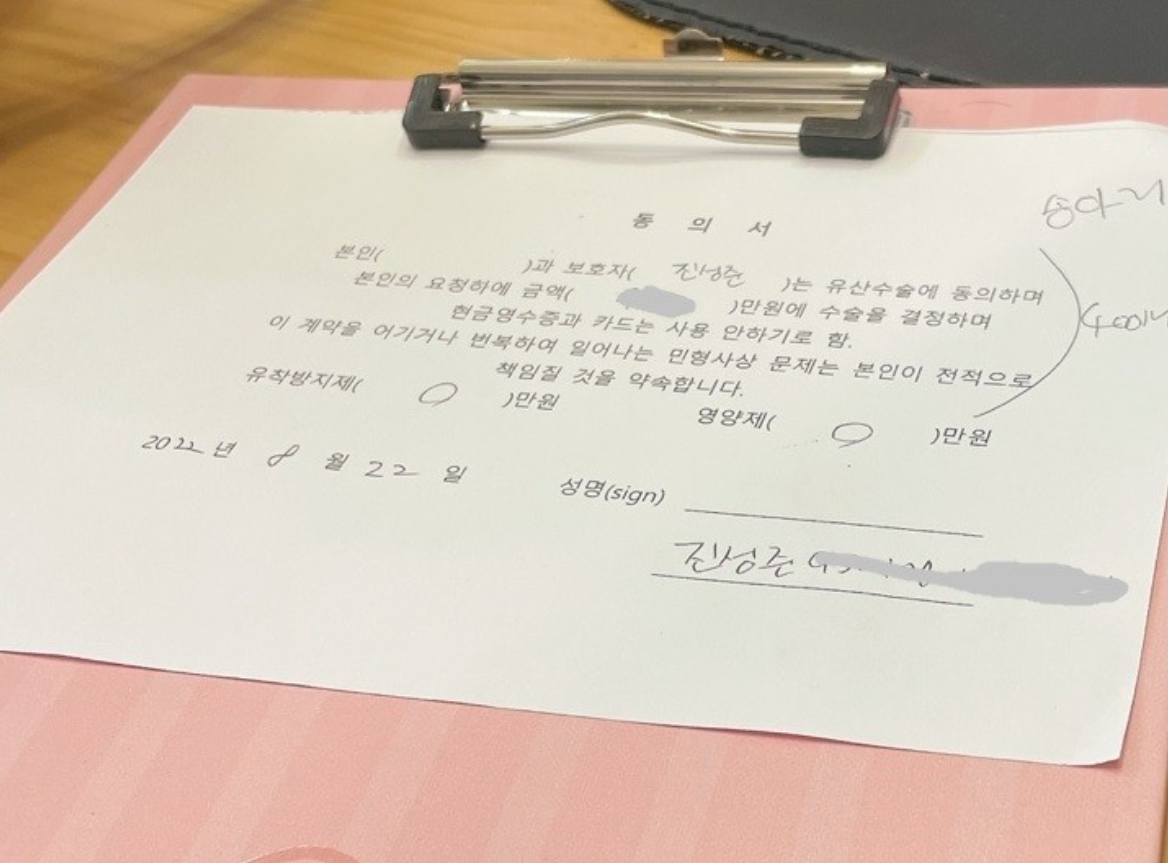 동 의 서
본인( )과 보호자( 진성준 )는 유산수술에 동의하며
본인의 요청하에 금액( )만원에 수술을 결정하며
현금영수증과 카드는 사용 안하기로 함.
이 계약을 어기거나 번복하여 일어나는 민형사상 문제는 본인이 전적으로
책임질 것을 약속합니다.
유착방지제( )만원 영양제( )만원
2022 년 8 월 22 일
성명(sign)
진성준